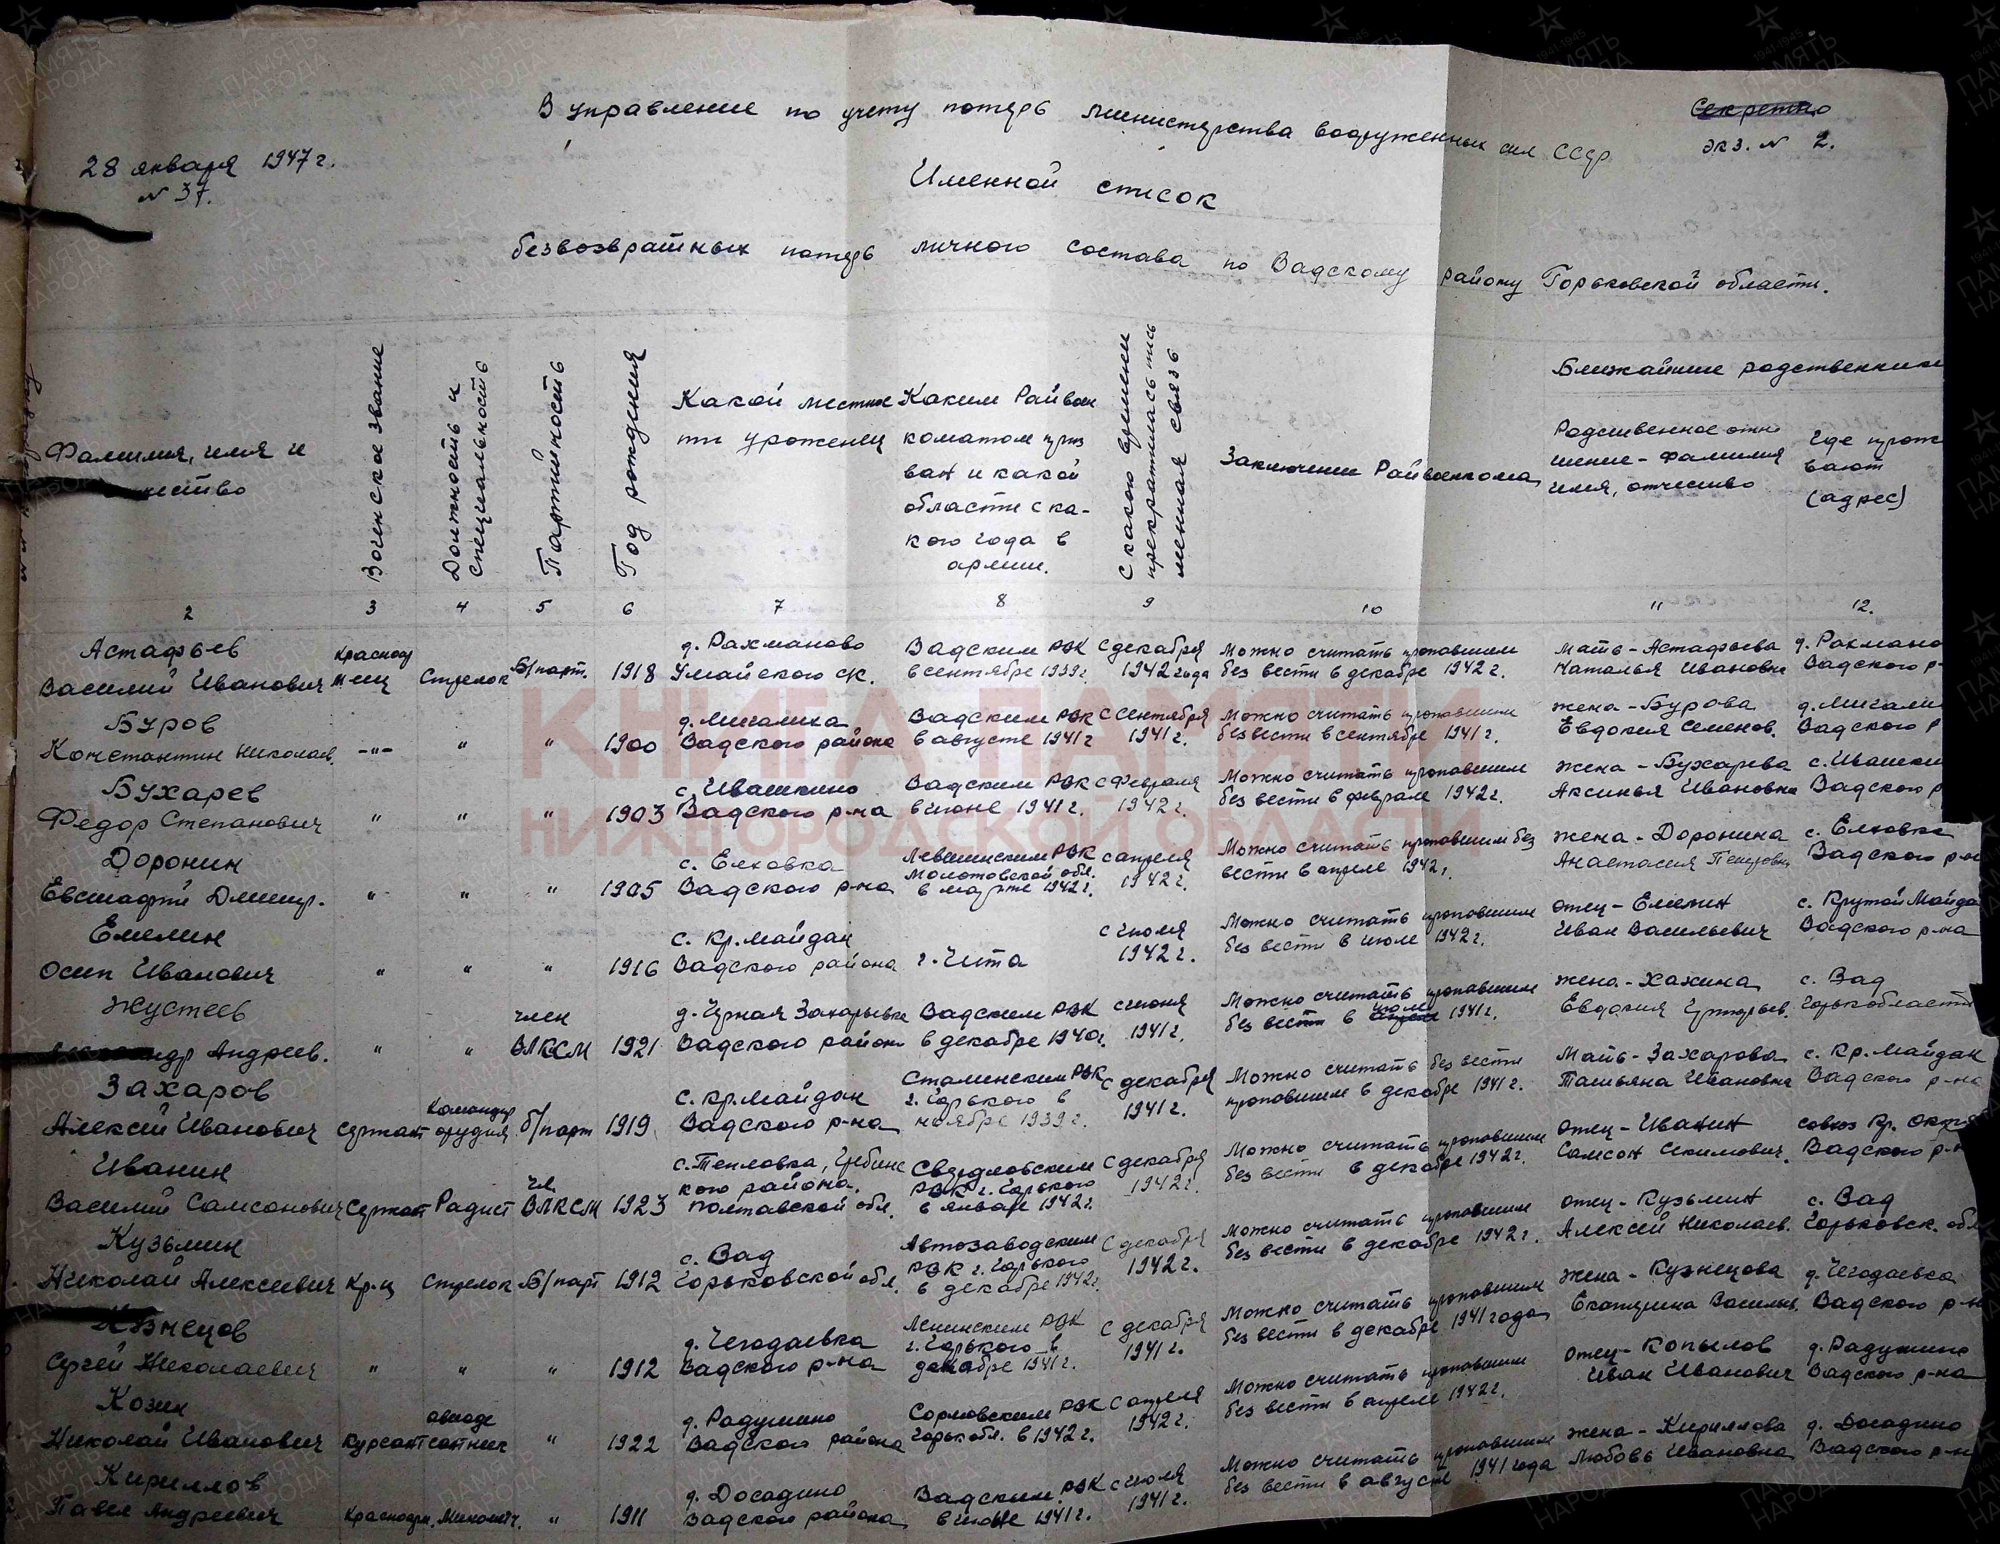 Секретно
В управление по учету потерь министерства вооруженных сил СССР
экз. № 2.
28 января 1947 г.
№ 37.
Именной список
безвозвратных потерь личного состава по Вадскому району Горьковской области.
Фамилия, имя и
Воинское звание
Должность и специальность
Партийность
Год рождения
Какой местнос
ти уроженец
Каким Райвоен
коматом приз
ван и какой
области с ка-
кого года в
армии.
С какого времени
прекратилась пись
менная связь
Заключение Райвоенкома
Ближайшие родственники
Родственное отно
шение - фамилия
имя, отчество
Где прожи
вают
(адрес)
2 3 4 5 6 7 8 9 10 11 12.
Астафьев д. Рахманово Вадским РВК С декабря Можно считать пропавшим мать - Астафьева д. Рахмано
Василий Иванович Красноар меец Стрелок Б/парт. 1918 Умайского с/с. в сентябре 1939г. 1942 года без вести в декабре 1942 г. Наталья Ивановна Вадского р-
Буров д. Мигалиха Вадским РВК С сентября Можно считать пропавшим жена - Бурова д. Мигали
Константин Николаев. -"- " " 1900 Вадского района в августе 1941 г 1941 г. без вести в сентябре 1941 г. Евдокия Семенов. Вадского р
Бухарев с. Ивашкино Вадским РВК с Февраля Можно считать пропавшим жена - Бухарева с. Ивашки
Федор Степанович " " " 1903 Вадского р-на в июне 1941 г. 1942 г. без вести в феврале 1942 г. Аксинья Ивановна Вадского р
Доронин с. Елховка Левшинским РВК Молотовской обл. с апреля Можно считать пропавшим без жена - Доронина с. Елховка
Евстафий Дмитр. " " " 1905 Вадского р-на в марте 1942 г. 1942 г. вести в апреле 1942 г. Анастасия Петровн Вадского р-н
Емелин с. Кр. Майдан с июля Можно считать пропавшим отец - Емелин с. Крутой Майда
Осип Иванович " " " 1916 Вадского района г. Чита 1942 г. без вести в июле 1942 г. Иван Васильевич Вадского р-на
Жустеев член д. Урная Вадским РВК с июня Можно считать пропавшим жена - Хахина с. Вад
Андреев. " " ВЛКСМ 1921 Вадского район в декабре 1940 г. 1941 г. без вести в июне 1941 г. Евдокия Григорьев. Горькобласти
Захаров Командир с. Кр. Майдан Сталинским РВК г. Горького в с декабря Можно считать без вести Мать - Захарова с. Кр. Майдан
Алексей Иванович Сержант орудия б/парт 1919 Вадского р-на ноябре 1939 г. 1941 г. пропавшим в декабре 1941 г. Татьяна Ивановна Вадского р-на
Иванин чл. с. Тепловка, кого района. Свердловским РВК г. Горького С декабря Можно считать пропавшим отец - Иванин совхоз Кр. Октяб
Василий Самсонович Сержант Радист ВЛКСМ 1923 Полтавской обл. в январе 1942 г. 1942 г. без вести в декабре 1942 г. Самсон Вадского р-н
Кузьмин с. Вад Автозаводским РВК г. Горького С декабря Можно считать пропавшим отец - Кузьмин с. Вад
Николай Алексеевич Кр-ц Стрелок Б/парт 1912 Горьковской обл. в декабре 1942 г. 1942 г. без вести в декабре 1942 г. Алексей Николаев. Горьковск. обл
Кузнецов д. Чегодаевка Ленинским РВК г. Горького в С декабря Можно считать пропавшим жена - Кузнецова д. Чегодаевка
Сергей Николаевич " " " 1912 Вадского р-на декабре 1941 г. 1941 г. без вести в декабре 1941 года Екатерина Васильев. Вадского р-н
Козин д. Радушино Сормовским РВК С апреля Можно считать пропавшим отец - Копылов д. Радушино
Николай Иванович Курсант " 1922 Вадского района Горьк обл. в 1942 г. 1942 г. без вести в апреле 1942 г. Иван Иванович Вадского р-на
Кириллов д. Досадино Вадским РВК с июля Можно считать пропавшим жена - Кириллова д. Досадино
Павел Андреевич Красноарм. Миномётч. " 1911 Вадского района в июне 1941 г. 1941 г. без вести в августе 1941 года Любовь Ивановна Вадского р-н
КНИГА ПАМЯТИ
НИЖЕГОРОДСКОЙ ОБЛАСТИ
ПАМЯТЬ НАРОДА